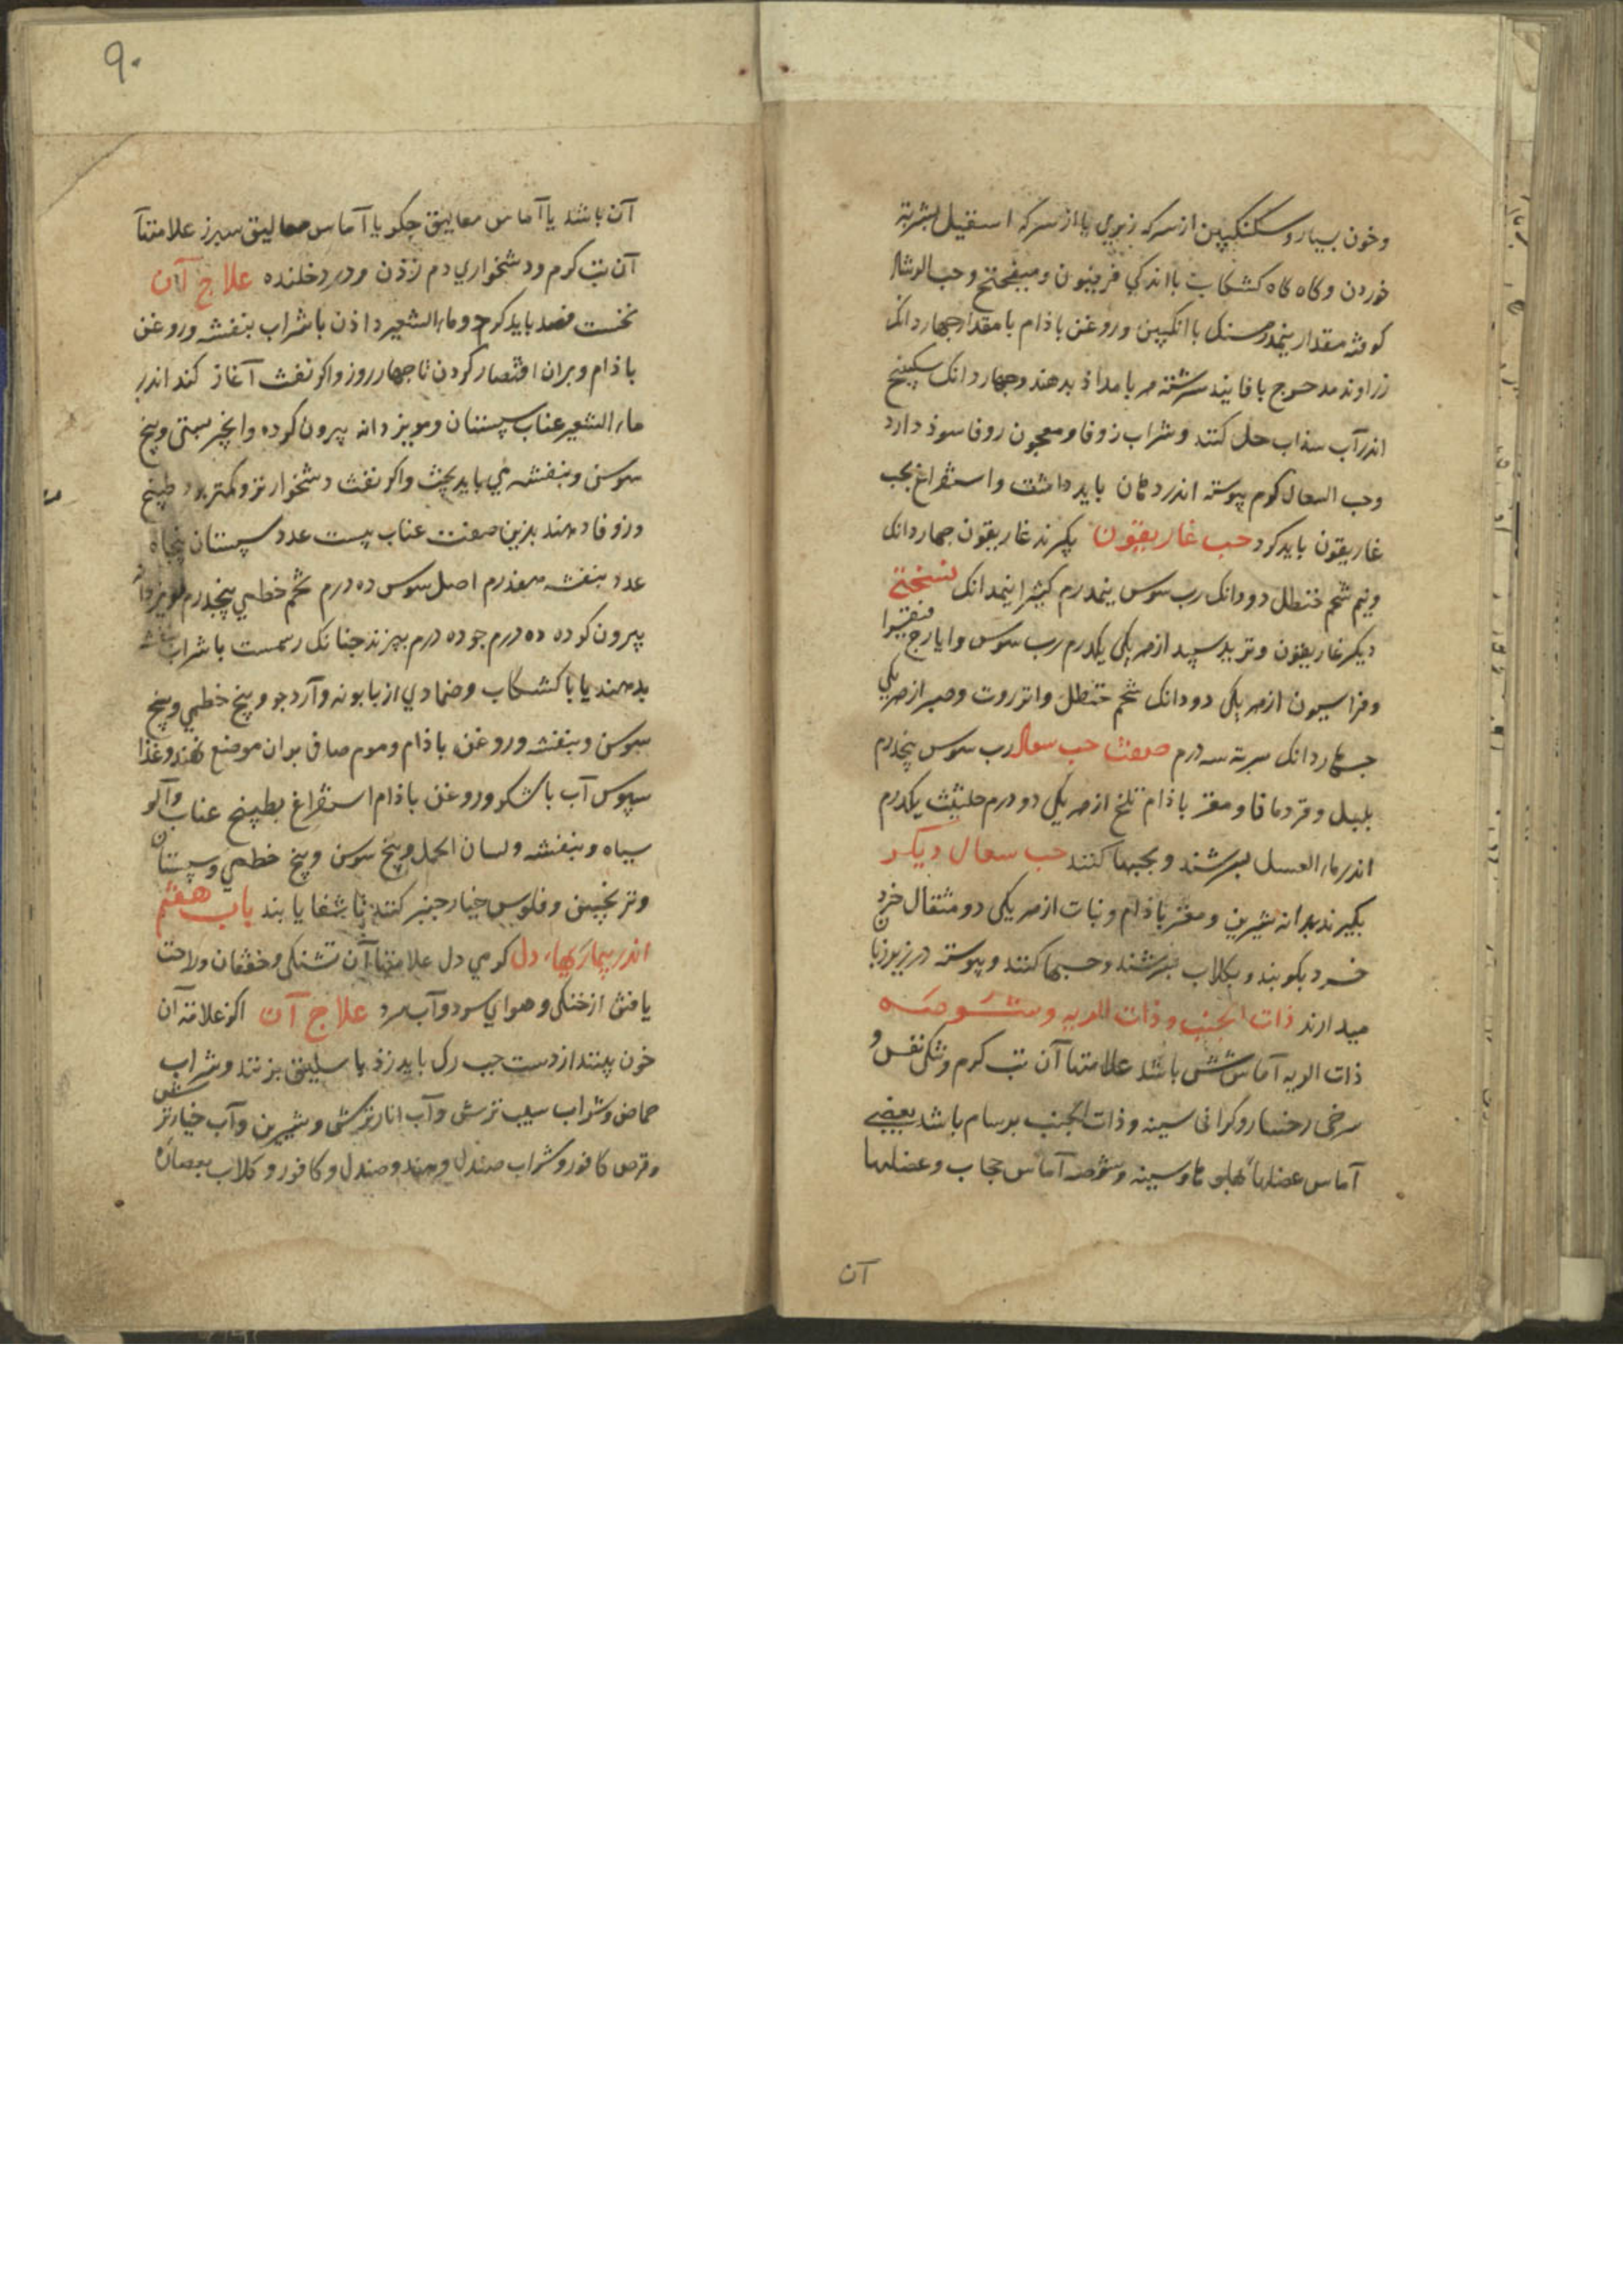 وخون بسیار و سکنگبین از سرکه زیری یا از سرکه اسقیل بشربة
خوردن وکاه کاه کشکاب با اندکی فربیون ومیفختج وحب الرشاد
کوفته مقدار نیمدرمسنک با انکبین وروغن باذام با مقدار جهاردانک
زراوند مدحرج با فانیذ سرشته هر بامداذ بدهند وجهاردانک سکبینج
اندر آب سذاب حل کنند وشراب زوفا ومعجون زوفا سوذ دارد
وحب السعال کرم پیوسته اندر دهان باید داشت واستفراغ بحب
غاریقون باید کرد حب غاریقون بکیرند غاریقون جهاردانک
ونیم شحم حنظل دودانک رب سوس نیمدرم کثیرا نیمدانک نسختی
دیکر غاریقون وتربد سپید از هر یکی یکدرم رب سوس وایارج فیقرا
وفراسیون از هر یکی دودانک شحم حنظل وانزروت وصبر از هر یکی
جهاردانک شربة سه درم صفت حب سعال رب سوس پنجدرم
بلبل وقردمانا ومغز باذام تلخ از هر یکی دو درم حلتیث یکدرم
اندر ماء العسل بسرشند وبحبها کنند حب سعال دیکر
بکیرند بهدانه شیرین ومغز باذام ونبات از هر یکی دو مثقال خرد
خرد بکوبند وبکلاب بسرشند وحبها کنند وپیوسته در زیر زبان
میدارند ذات الجنب وذات الریه وشوصه
ذات الریه آماس شش باشد علامتها آن تب کرم وتنکی نفس و
سرخی رخسار وکرانی سینه وذات الجنب برسام باشد یعضی
آماس عضلها پهلوها وسینه وشوصه آماس حجاب وعضلها
آن
۹۰
آن باشد یا آماس معالیق جکر یا آماس معالیق سپرز علامتها
آن تب کرم ودشخواری دم زذن ودرد خلنده علاج آن
نخست فصد باید کرد وماء الشعیر داذن با شراب بنفشه وروغن
باذام وبران اقتصار کردن تا جهار روز واکر نفث آغاز کند اندر
ماء الشعیر عناب سپستان ومویز دانه بیرون کرده وانجیر بستی وبیخ
سوسن وبنفشه می باید پخت واکر نفث دشخوارتر وکمتر بود طبیخ
وزوفا دهند بدین صفت عناب بیست عدد سپستان پنجاه
عدد بنفشه هفدرم اصل سوس ده درم تخم خطمی پنجدرم مویز دانه
بیرون کرده ده درم جو ده درم بپزند جنانک رسمست با شراب بنفشه
بدهند یا با کشکاب وضمادی از بابونه وآرد جو وبیخ خطمی وبیخ
سوسن وبنفشه وروغن باذام وموم صافی بران موضع نهند وغذا
سپوس آب با شکر وروغن باذام استفراغ بطبیخ عناب وآلو
سیاه وبنفشه ولسان الحمل وبیخ سوسن وبیخ خطمی وسپستان
وترنجبین وفلوس خیار جنبر کنند تا شفا یابند باب هفتم
اندر بیماریهاء دل کرمی دل علامتها آن تشنکی وخفقان وراحت
یافتن از خنکی وهوای سرد وآب سرد علاج آن اکر علامة آن
خون بینند از دست جب رک باید زذ باسلیق بزنند وشراب
حماض وشراب سیب ترش وآب انار ترش وشیرین وآب خیارتر
وقرص کافور وشراب صندل دهند وصندل وکافور وکلاب